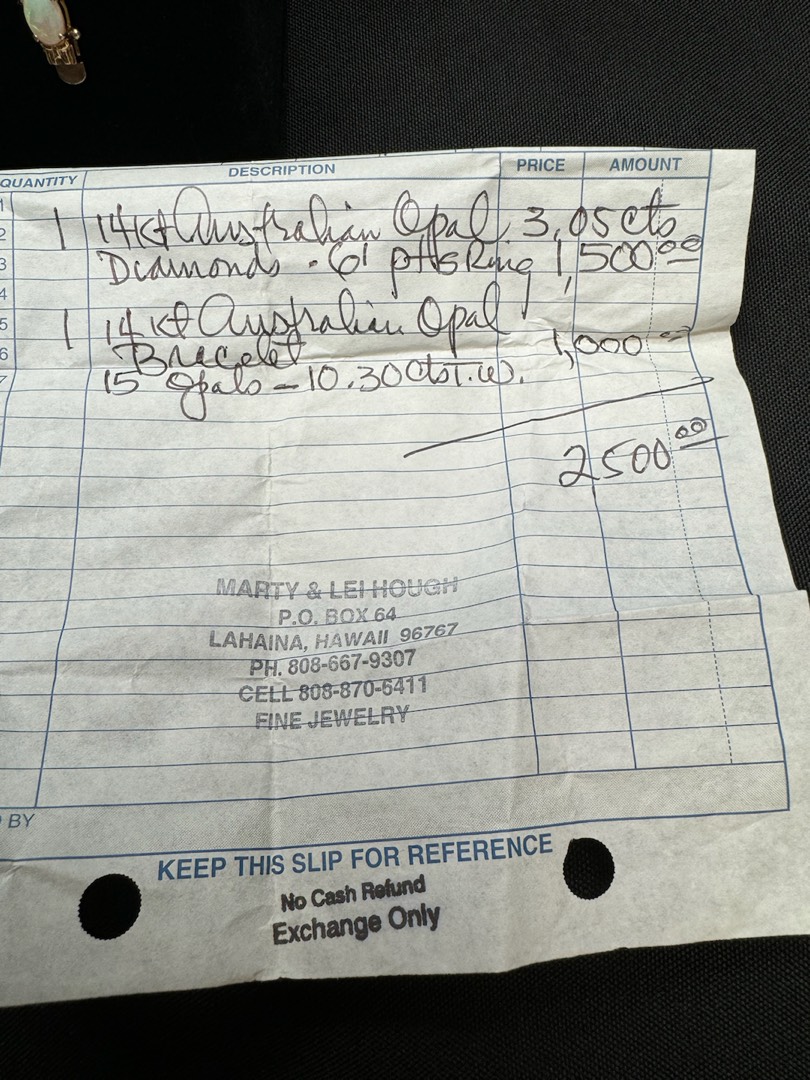 QUANTITY DESCRIPTION PRICE AMOUNT
1
2 1 14kt Australian Opal 3.05 cts
3 Diamonds .61 pts Ring 1,500 00
4
5 1 14kt Australian Opal
6 Bracelet 1,000
7 15 Opals - 10.30 cts T.W.
2500 00
MARTY & LEI HOUGH
P.O. BOX 64
LAHAINA, HAWAII 96767
PH. 808-667-9307
CELL 808-870-6411
FINE JEWELRY
BY
KEEP THIS SLIP FOR REFERENCE
No Cash Refund
Exchange Only